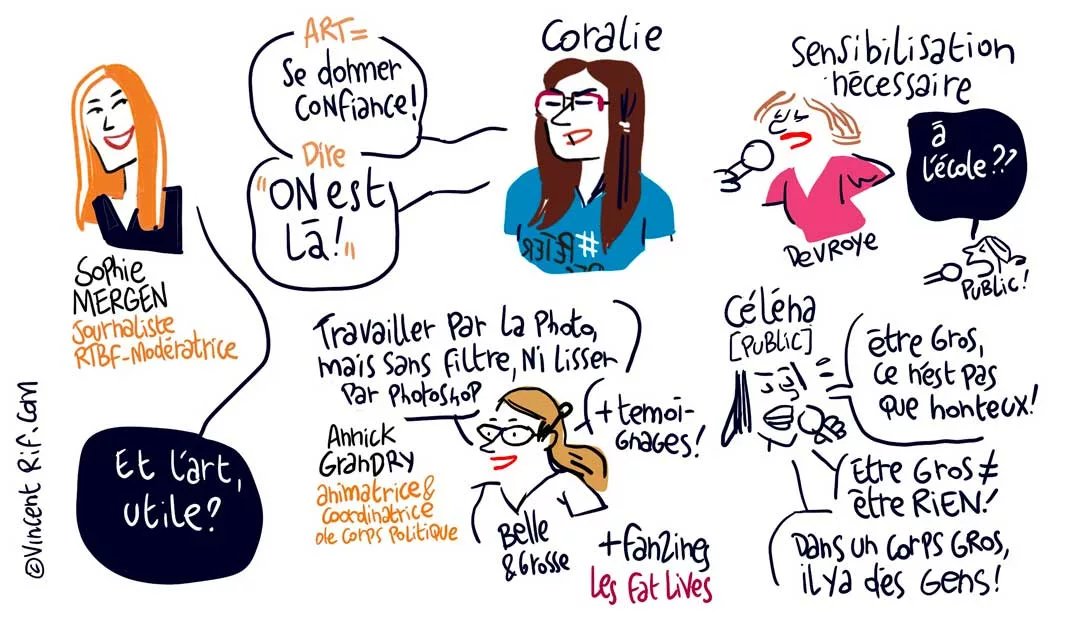 Sophie
MERGEN
Journaliste
RTBF-Modératrice
Et l'art,
utile?
ART=
Se donner
confiance!
Dire
"ON est
Là!"
Coralie
#
PETER
Sensibilisation
nécessaire
DEVROYE
à
l'école??
PUBLIC!
Travailler par la photo,
mais sans filtre, ni lisser
par photoshop
Annick
GRANDRY
animatrice &
coordinatrice
de Corps Politique
+ temoi-
gnages!
Belle
& Grosse
+ fanzines
Les fat Lives
Céléna
[PUBLIC]
être Gros,
ce n'est pas
que honteux!
Être Gros ≠
être RIEN!
Dans un corps GROS,
il y a des Gens!
©Vincent Rif.com